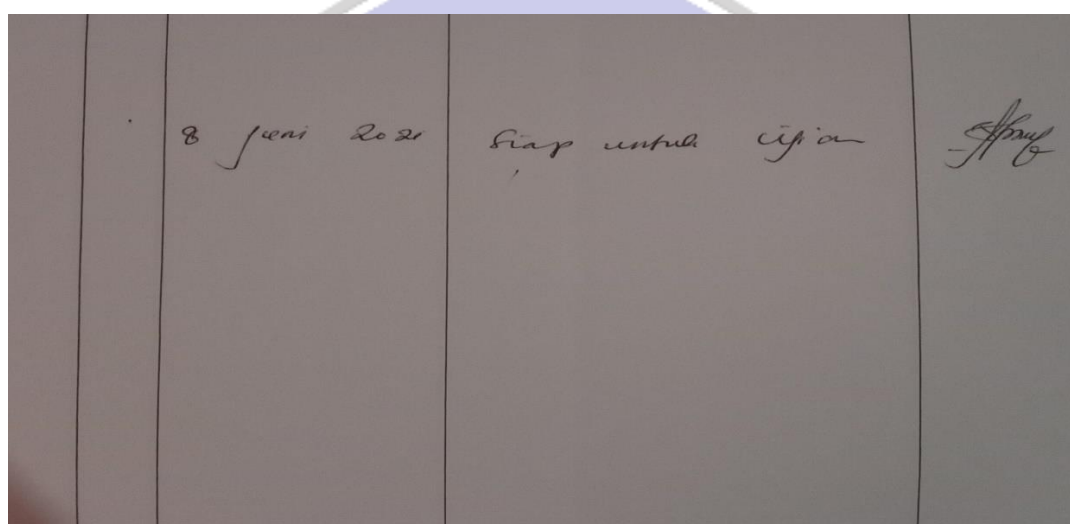 8 Juni 2021 Siap untuk Ujian